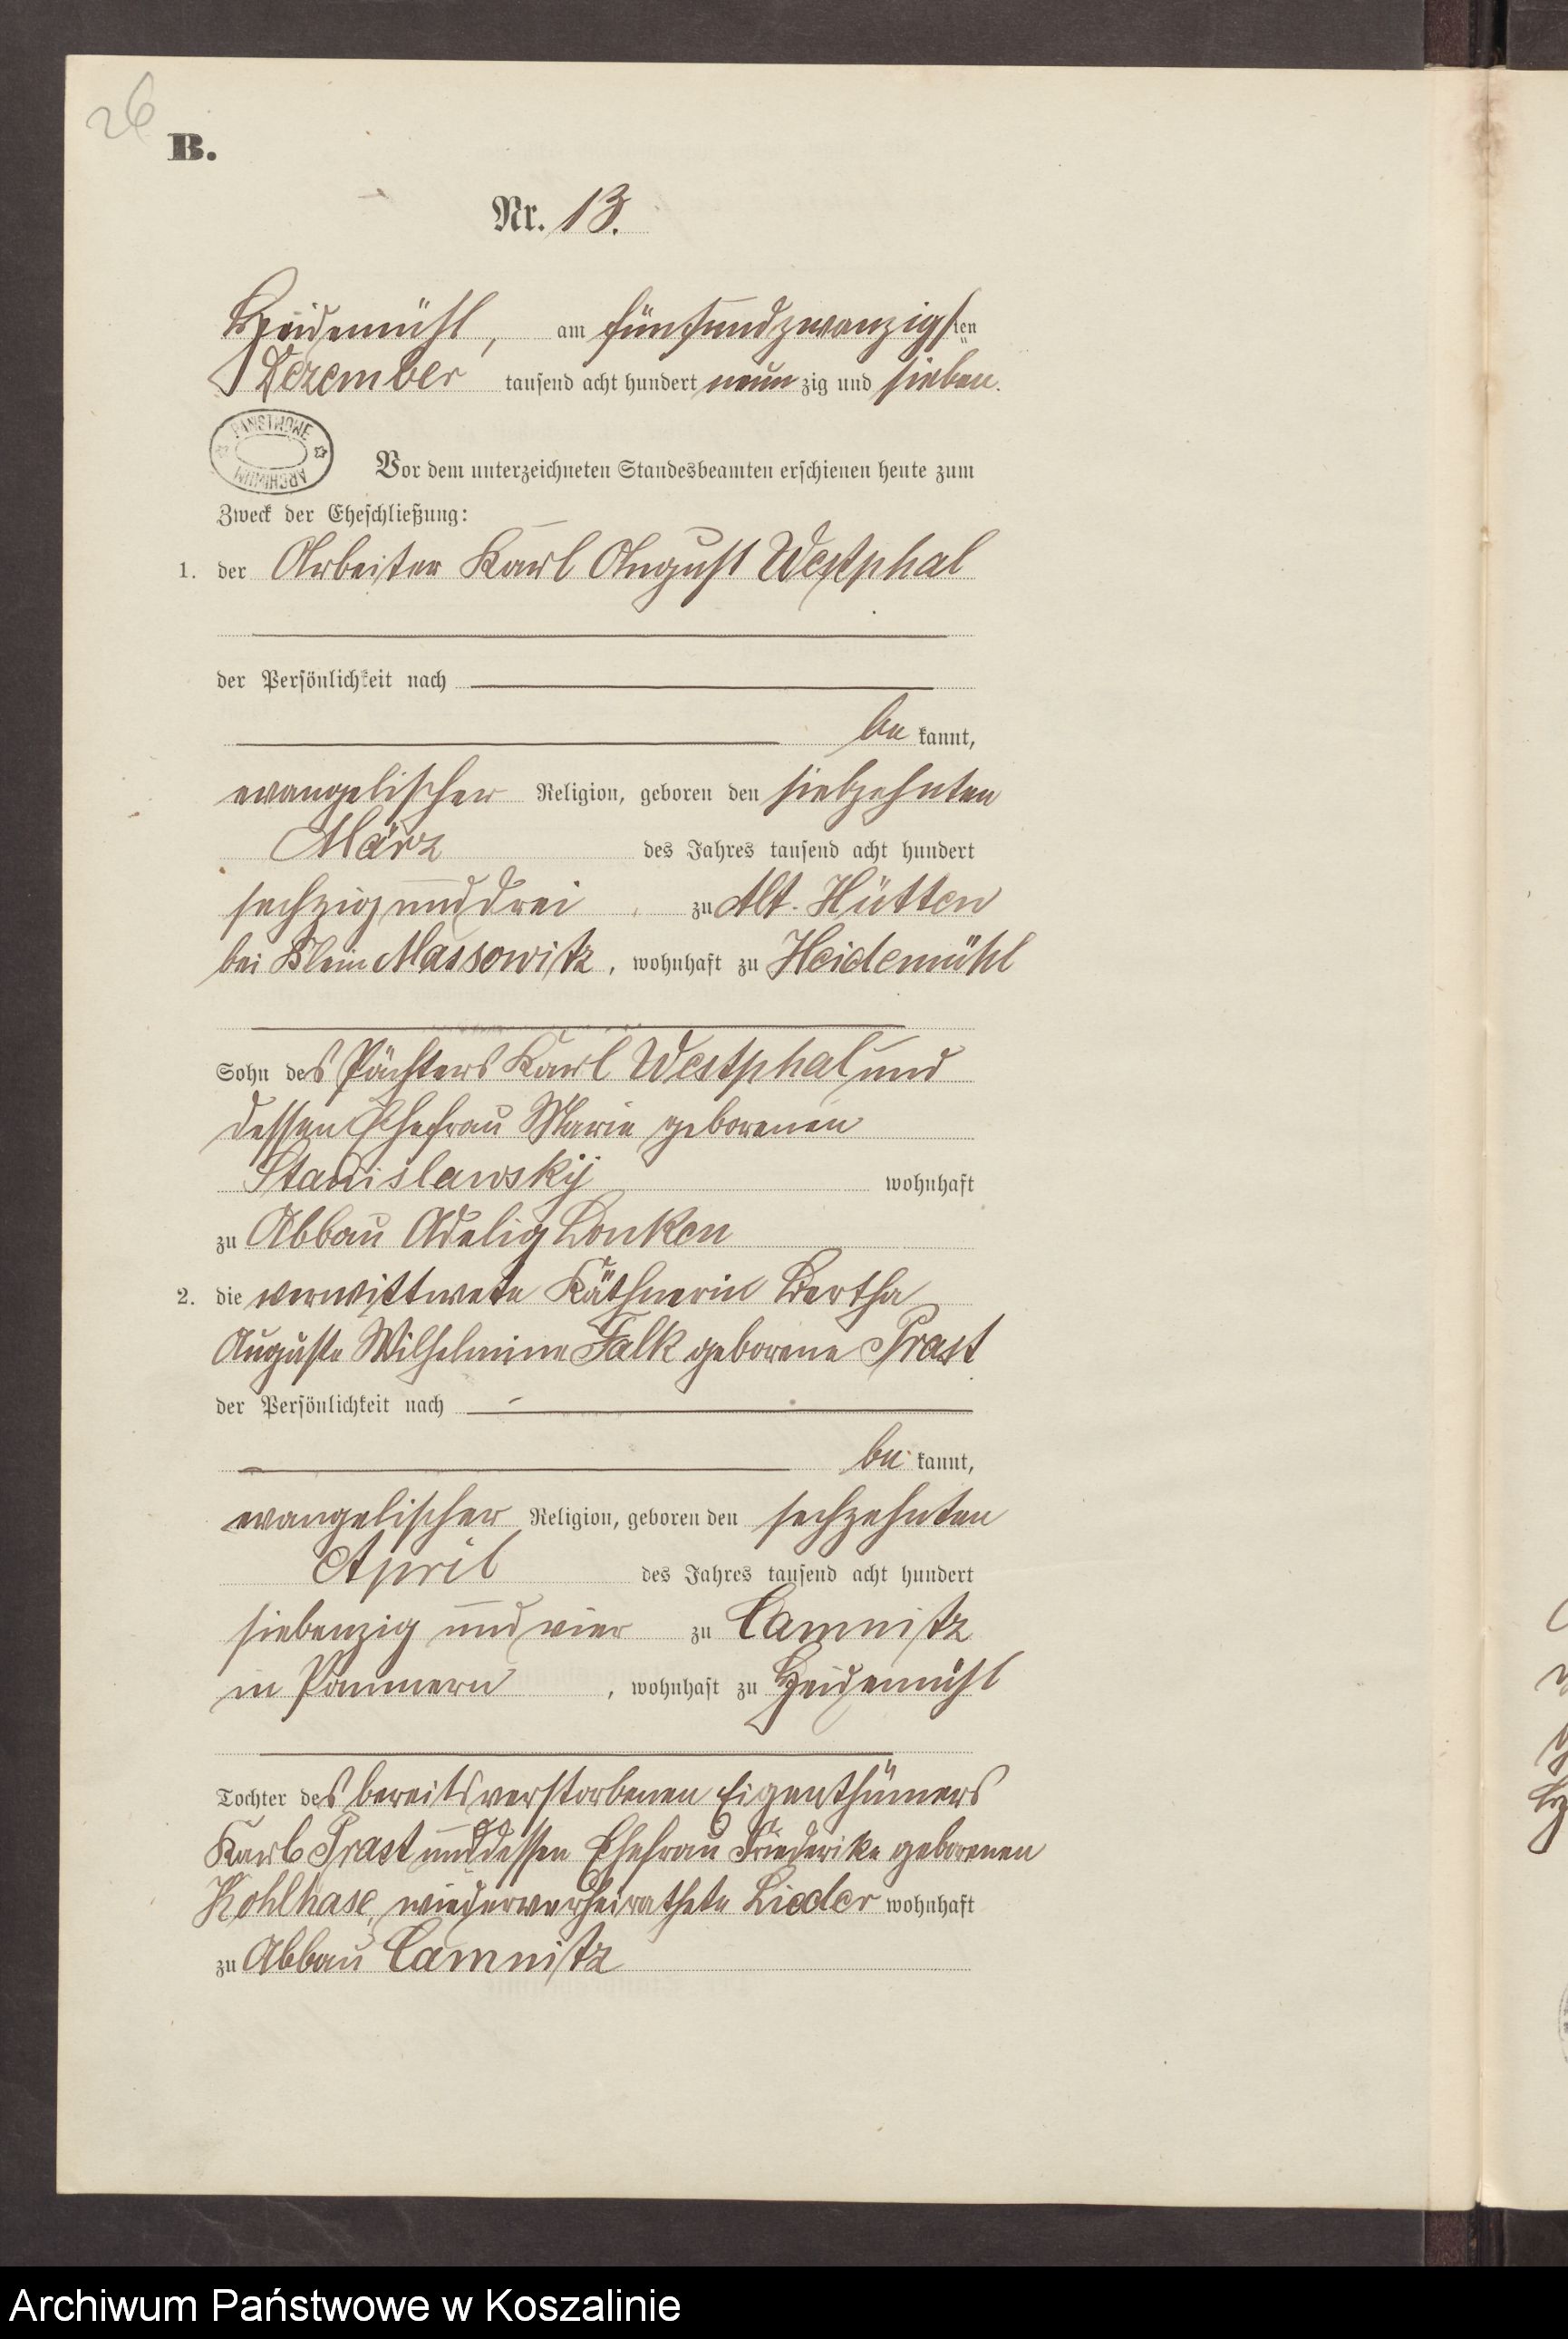 26
B.
Nr. 13.
Heidemühl, am fünfundzwanzigsten
Dezember tausend acht hundert neunzig und sieben.
PAŃSTWOWE
ARCHIWUM
Vor dem unterzeichneten Standesbeamten erschienen heute zum
Zweck der Eheschließung:
1. der Arbeiter Karl August Westphal
der Persönlichkeit nach
be kannt,
evangelischer Religion, geboren den siebzehnten
März des Jahres tausend acht hundert
sechzig und drei zu Alt-Hütten
bei Klein Massowitz, wohnhaft zu Heidemühl
Sohn des Pächters Karl Westphal und
dessen Ehefrau Marie geborenen
Stanislawsky wohnhaft
zu Abbau Adelig Lonken
2. die verwittwete Käthnerin Bertha
Auguste Wilhelmine Falk geborene Prast
der Persönlichkeit nach
be kannt,
evangelischer Religion, geboren den sechzehnten
April des Jahres tausend acht hundert
siebenzig und vier zu Camnitz
in Pommern, wohnhaft zu Heidemühl
Tochter des bereits verstorbenen Eigenthümers
Karl Prast und dessen Ehefrau Friederike geborenen
Kohlhase, wiederverheirathete Lieder wohnhaft
zu Abbau Camnitz
Archiwum Państwowe w Koszalinie